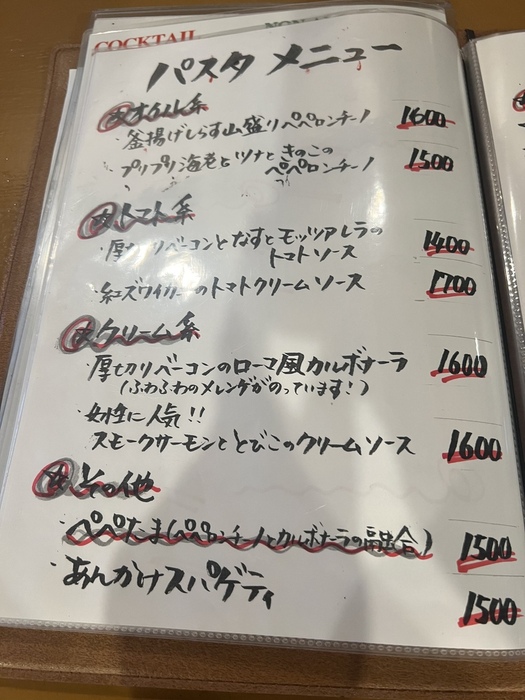 COCKTAIL
パスタ メニュー
オイル系
・釜揚げしらす山盛りペペロンチーノ 1600
・プリプリ海老とツナときのこの
ペペロンチーノ 1500
トマト系
・厚切りベーコンとなすとモッツァレラの
トマトソース 1400
・紅ズワイガニのトマトクリームソース 1700
クリーム系
・厚切りベーコンのローマ風カルボナーラ 1600
(ふわふわのメレンゲがのっています!)
・女性に人気!!
スモークサーモンととびこのクリームソース 1600
その他
・ペペたま(ペペロンチーノとカルボナーラの融合) 1500
・あんかけスパゲティ 1500